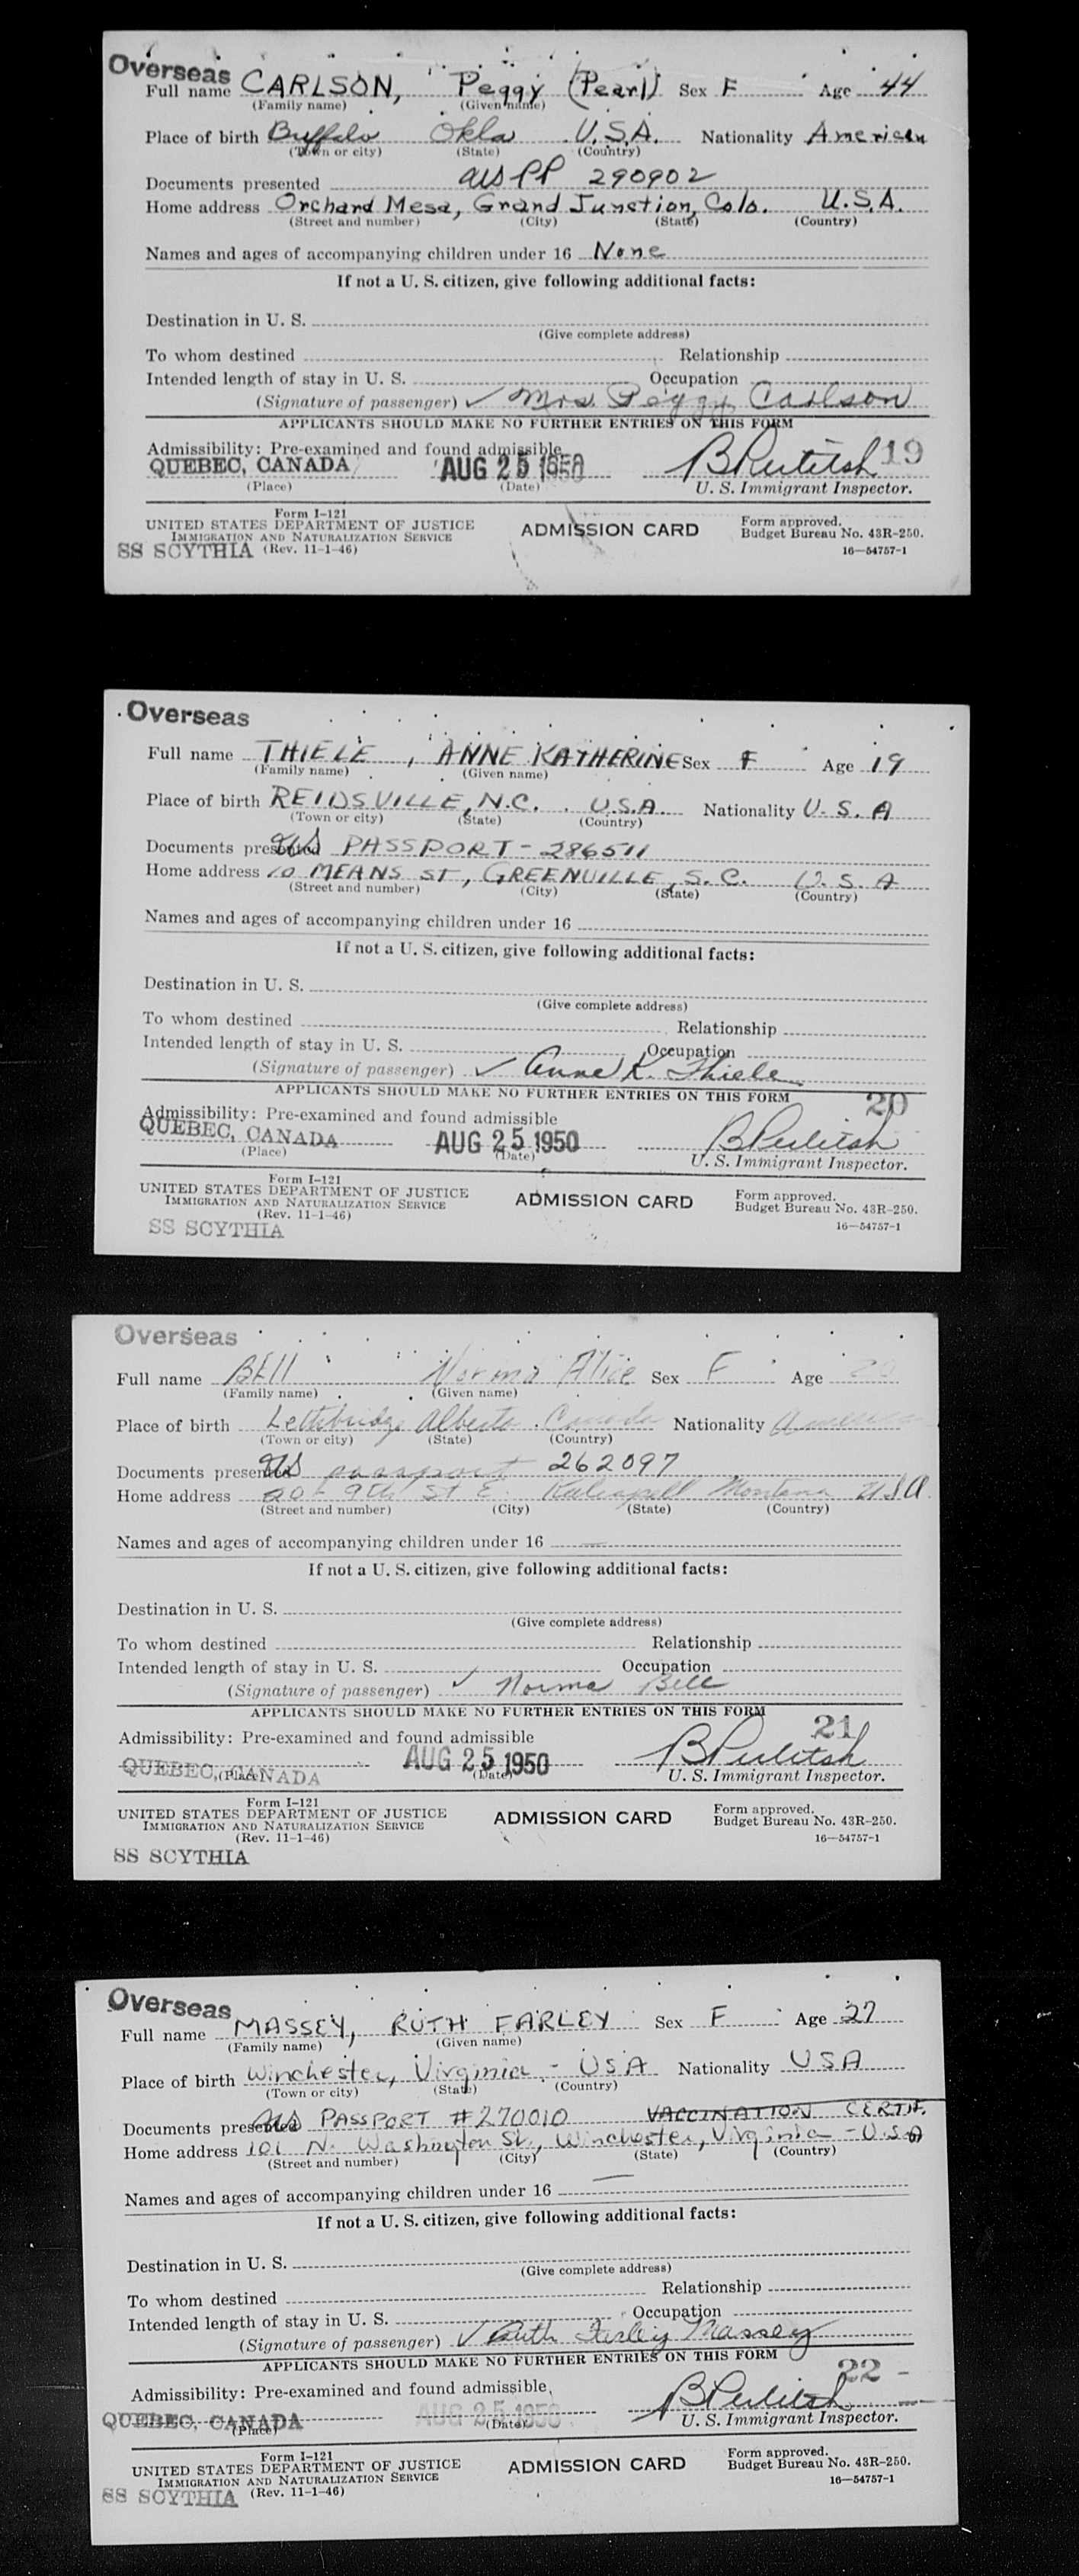 Overseas
Full name CARLSON, Peggy (Pearl) Sex F Age 44
(Family name) (Given name)
Place of birth Buffalo Okla U.S.A. Nationality American
(Town or city) (State) (Country)
Documents presented US PP 290902
Home address Orchard Mesa, Grand Junction, Colo. U.S.A.
(Street and number) (City) (State) (Country)
Names and ages of accompanying children under 16 None
If not a U. S. citizen, give following additional facts:
Destination in U. S.
(Give complete address)
To whom destined Relationship
Intended length of stay in U. S. Occupation
(Signature of passenger) ✓ Mrs. Peggy Carlson
APPLICANTS SHOULD MAKE NO FURTHER ENTRIES ON THIS FORM
Admissibility: Pre-examined and found admissible 19
QUEBEC, CANADA AUG 25 1950
(Place) (Date) U. S. Immigrant Inspector.
Form I-121
UNITED STATES DEPARTMENT OF JUSTICE ADMISSION CARD Form approved.
IMMIGRATION AND NATURALIZATION SERVICE Budget Bureau No. 43R-250.
SS SCYTHIA (Rev. 11-1-46) 16—54757-1
Overseas
Full name THIELE, ANNE KATHERINE Sex F Age 19
(Family name) (Given name)
Place of birth REIDSVILLE, N.C. U.S.A Nationality U. S. A
(Town or city) (State) (Country)
Documents presented US PASSPORT - 286511
Home address 10 MEANS ST, GREENVILLE, S.C. U. S. A
(Street and number) (City) (State) (Country)
Names and ages of accompanying children under 16
If not a U. S. citizen, give following additional facts:
Destination in U. S.
(Give complete address)
To whom destined Relationship
Intended length of stay in U. S. Occupation
(Signature of passenger) ✓ Anne K. Thiele
APPLICANTS SHOULD MAKE NO FURTHER ENTRIES ON THIS FORM
Admissibility: Pre-examined and found admissible 20
QUEBEC, CANADA AUG 25 1950
(Place) (Date) U. S. Immigrant Inspector.
Form I-121
UNITED STATES DEPARTMENT OF JUSTICE ADMISSION CARD Form approved.
IMMIGRATION AND NATURALIZATION SERVICE Budget Bureau No. 43R-250.
(Rev. 11-1-46) 16—54757-1
SS SCYTHIA
Overseas
Full name BEll Norma Alice Sex F Age 20
(Family name) (Given name)
Place of birth Lethbridge Alberta Canada Nationality American
(Town or city) (State) (Country)
Documents presented US passport 262097
Home address 20 - 9th St E. Kalispell Montana USA
(Street and number) (City) (State) (Country)
Names and ages of accompanying children under 16 —
If not a U. S. citizen, give following additional facts:
Destination in U. S.
(Give complete address)
To whom destined Relationship
Intended length of stay in U. S. Occupation
(Signature of passenger) ✓ Norma Bell
APPLICANTS SHOULD MAKE NO FURTHER ENTRIES ON THIS FORM
Admissibility: Pre-examined and found admissible 21
QUEBEC, CANADA AUG 25 1950
(Place) (Date) U. S. Immigrant Inspector.
Form I-121
UNITED STATES DEPARTMENT OF JUSTICE ADMISSION CARD Form approved.
IMMIGRATION AND NATURALIZATION SERVICE Budget Bureau No. 43R-250.
(Rev. 11-1-46) 16—54757-1
SS SCYTHIA
Overseas
Full name MASSEY, RUTH FARLEY Sex F Age 27
(Family name) (Given name)
Place of birth Winchester, Virginia - USA Nationality USA
(Town or city) (State) (Country)
Documents presented US PASSPORT #270010 VACCINATION CERTIF.
Home address 101 N. Washington St., Winchester, Virginia - U.S.A
(Street and number) (City) (State) (Country)
Names and ages of accompanying children under 16 —
If not a U. S. citizen, give following additional facts:
Destination in U. S.
(Give complete address)
To whom destined Relationship
Intended length of stay in U. S. Occupation
(Signature of passenger) ✓ Ruth Farley Massey
APPLICANTS SHOULD MAKE NO FURTHER ENTRIES ON THIS FORM
Admissibility: Pre-examined and found admissible 22 -
QUEBEC, CANADA AUG 25 1950
(Place) (Date) U. S. Immigrant Inspector.
Form I-121
UNITED STATES DEPARTMENT OF JUSTICE ADMISSION CARD Form approved.
IMMIGRATION AND NATURALIZATION SERVICE Budget Bureau No. 43R-250.
SS SCYTHIA (Rev. 11-1-46) 16—54757-1